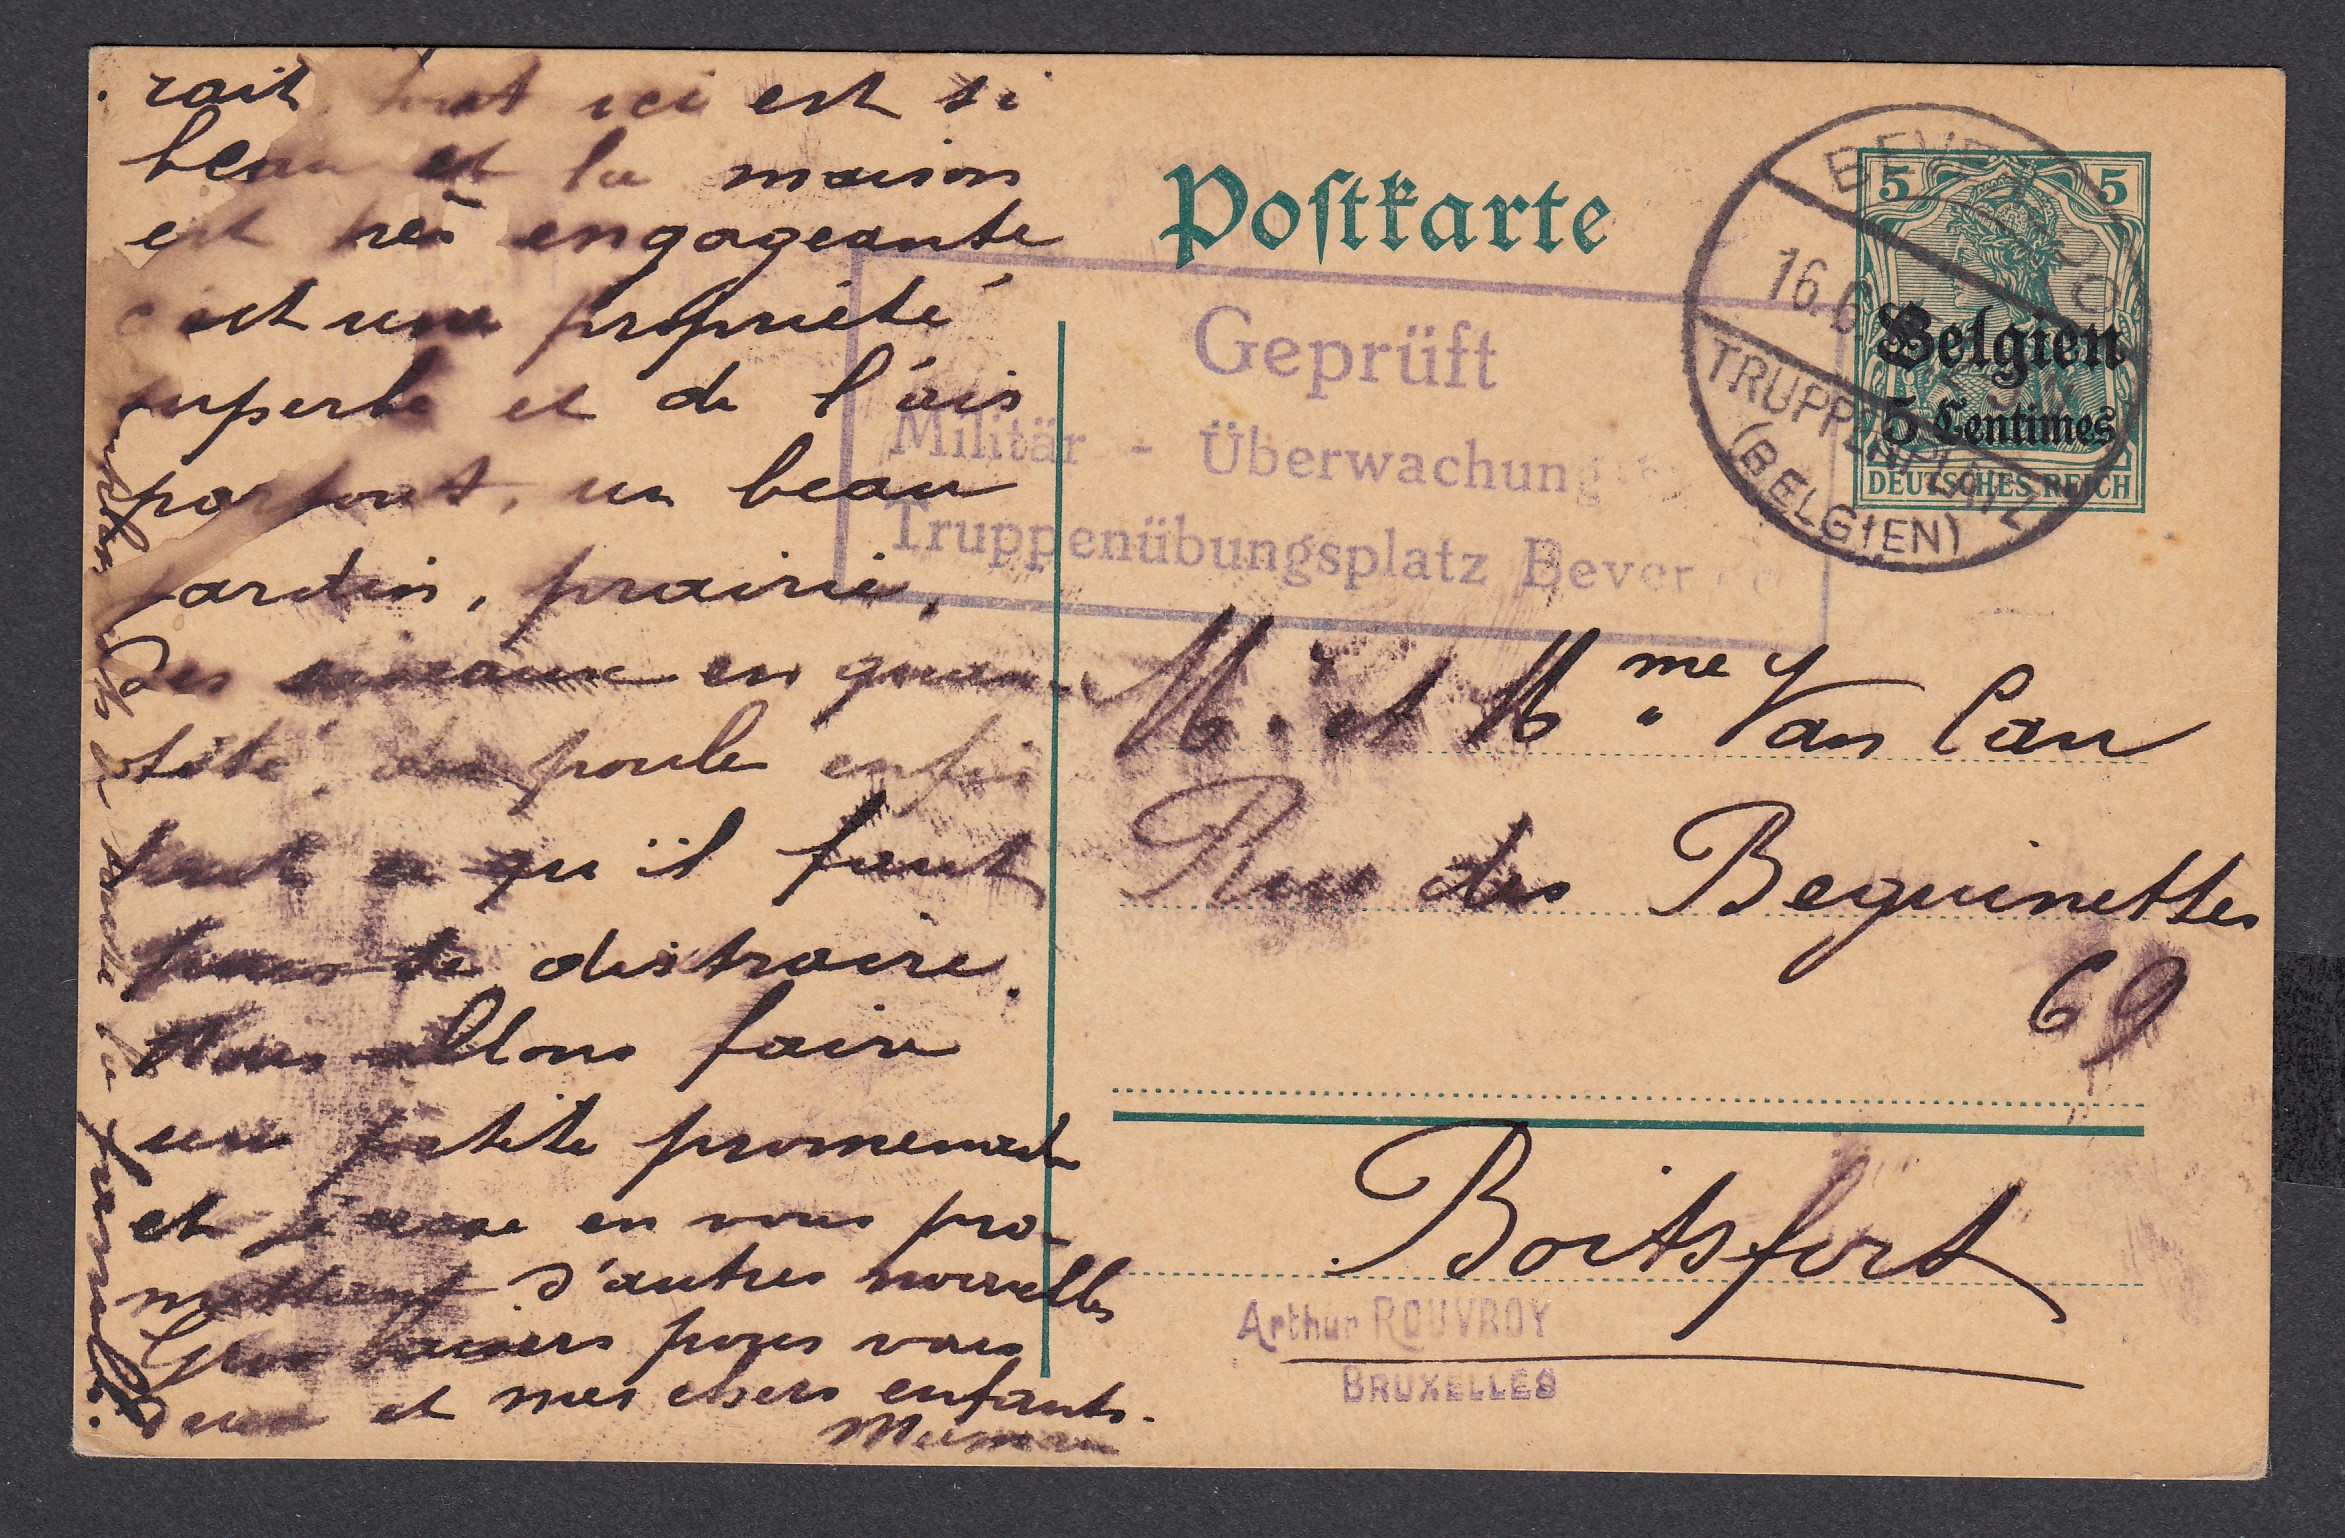 rait, tout ici est si
beau et la maison
est très engageante
c'est une propriété
superbe et de l'air
partout, un beau
jardin, prairie,
des oiseaux en quan-
tité, des poules enfin
tout ce qu'il faut
pour se distraire.
Nous allons faire
une petite promenade
et j'
en vous pro-
mettant d'autres nouvelles
Gros baisers pour vous
deux et mes chers enfants.
Maman
toute la famille.
Postkarte
5 5
Belgien
5 Centimes
DEUTSCHES REICH
BEVERLOO
16.6
TRUPPENPLATZ
(BELGIEN)
Geprüft
Militär - Überwachung
Truppenübungsplatz Bever
M. et Mme Van Cau
Rue des Beguinettes
69
Boitsfort
Arthur ROUVROY
BRUXELLES